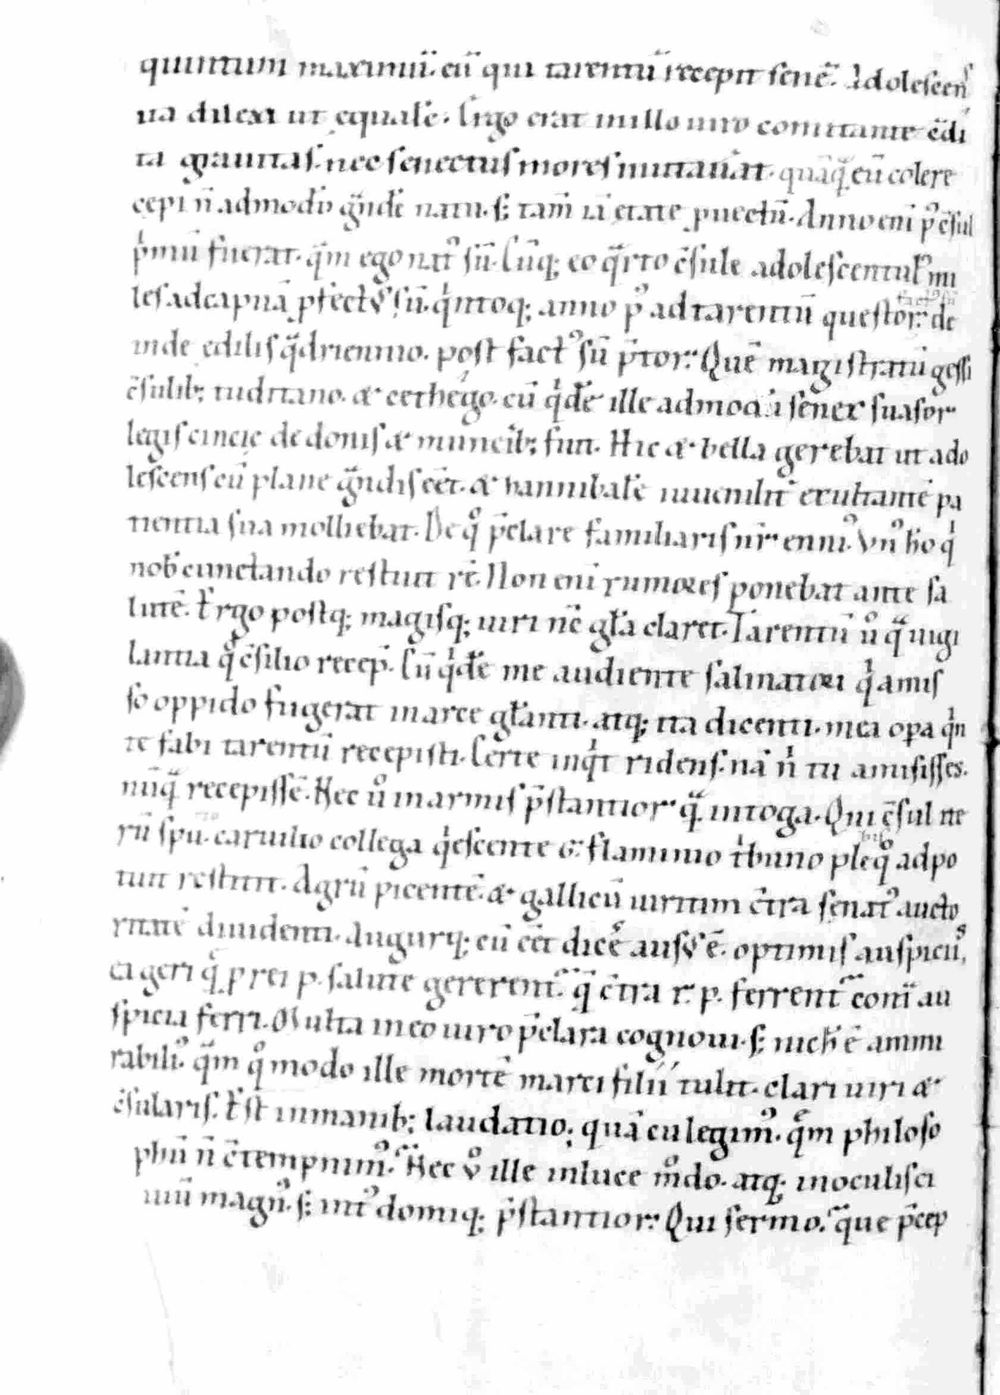 quintum maximū. eū qui tarentū recepit senē. Adolescen
tia dilexi ut equalē. Ergo erat in illo uiro comitante cōdi
ta grauitas. nec senectus mores mutauāt. quāq̄ eū colere
cepi n̄ admodū g̃nde natu. s; tam̄ iā etate ꝓuectū. Anno eni p᷒ cōsul
p̃mū fuerat. q̄m ego nat᷒ sū. Cūq; eo q̃rto cōsule adolescentul᷒ mi
les ad capuā ꝓfectus sū. q̇ntoq; anno p᷒ ad tarentū questor. de
inde edilis q̃driennio. post fact᷒ sū p̄tor. Quē magistratū gessi
cōsulib; tuditano. & cethego. cū q̇dē ille admodū senex suasor
legis cincię de donis & munerib; fuit. Hic & bella gerebat ut ado
lescens cū plane g̃ndis eēt. & hannibalē iuuenilit᷒ exultantē pa
tientia sua molliebat. De q̊ p̄clare familiaris nr̄ enni᷒. Vn᷒ ho q̇
nob̄ cunctando restituit rē. Non eni rumores ponebat ante sa
lutē. Ergo postq; magisq; uiri nc̄ gl̄a claret. Tarentū ů q̃ uigi
lantia q̊ cōsilio recep̄. Cū q̇dē me audiente salinatori q̇ amis
so oppido fugerat in arce gl̄anti. atq; ita dicenti. mea opa q̇n
te fabi tarentū recepisti. Certe inq̇t ridens. nā ṅ tu amisisses.
nūq̃ recepissē. Nec ů in armis p̄stantior q̃ in toga. Qui cōsul ite
rū spu. caruilio collega q̇escente c. flaminio tṙbuno plebis q̊ ad po
tuit restitit. Agrū picentē. & gallicū uiritim cōtra senat᷒ aucto
ritatē diuidenti. Augurq; cū eēt dicere ausus ē. optimis auspiciis
ea geri q̄ p rei p. salute gererent᷒. q̄ cōtra r. p. ferrent᷒ contra au
spicia ferri. Multa in eo uiro p̄clara cognoui. s; nichil ē ammi
rabili᷒. q̄m q̊modo ille mortē marci filii tulit. clari uiri &
cōsularis. Est in manib; laudatio; quā cū legim᷒. quem philoso
phū n̄ cōtempnim᷒. Nec ů ille in luce m̊do. atq; in oculis ci
uiū magn᷒. s; int᷒ domiq; p̄stantior. Qui sermo. q̃ que p̄cep